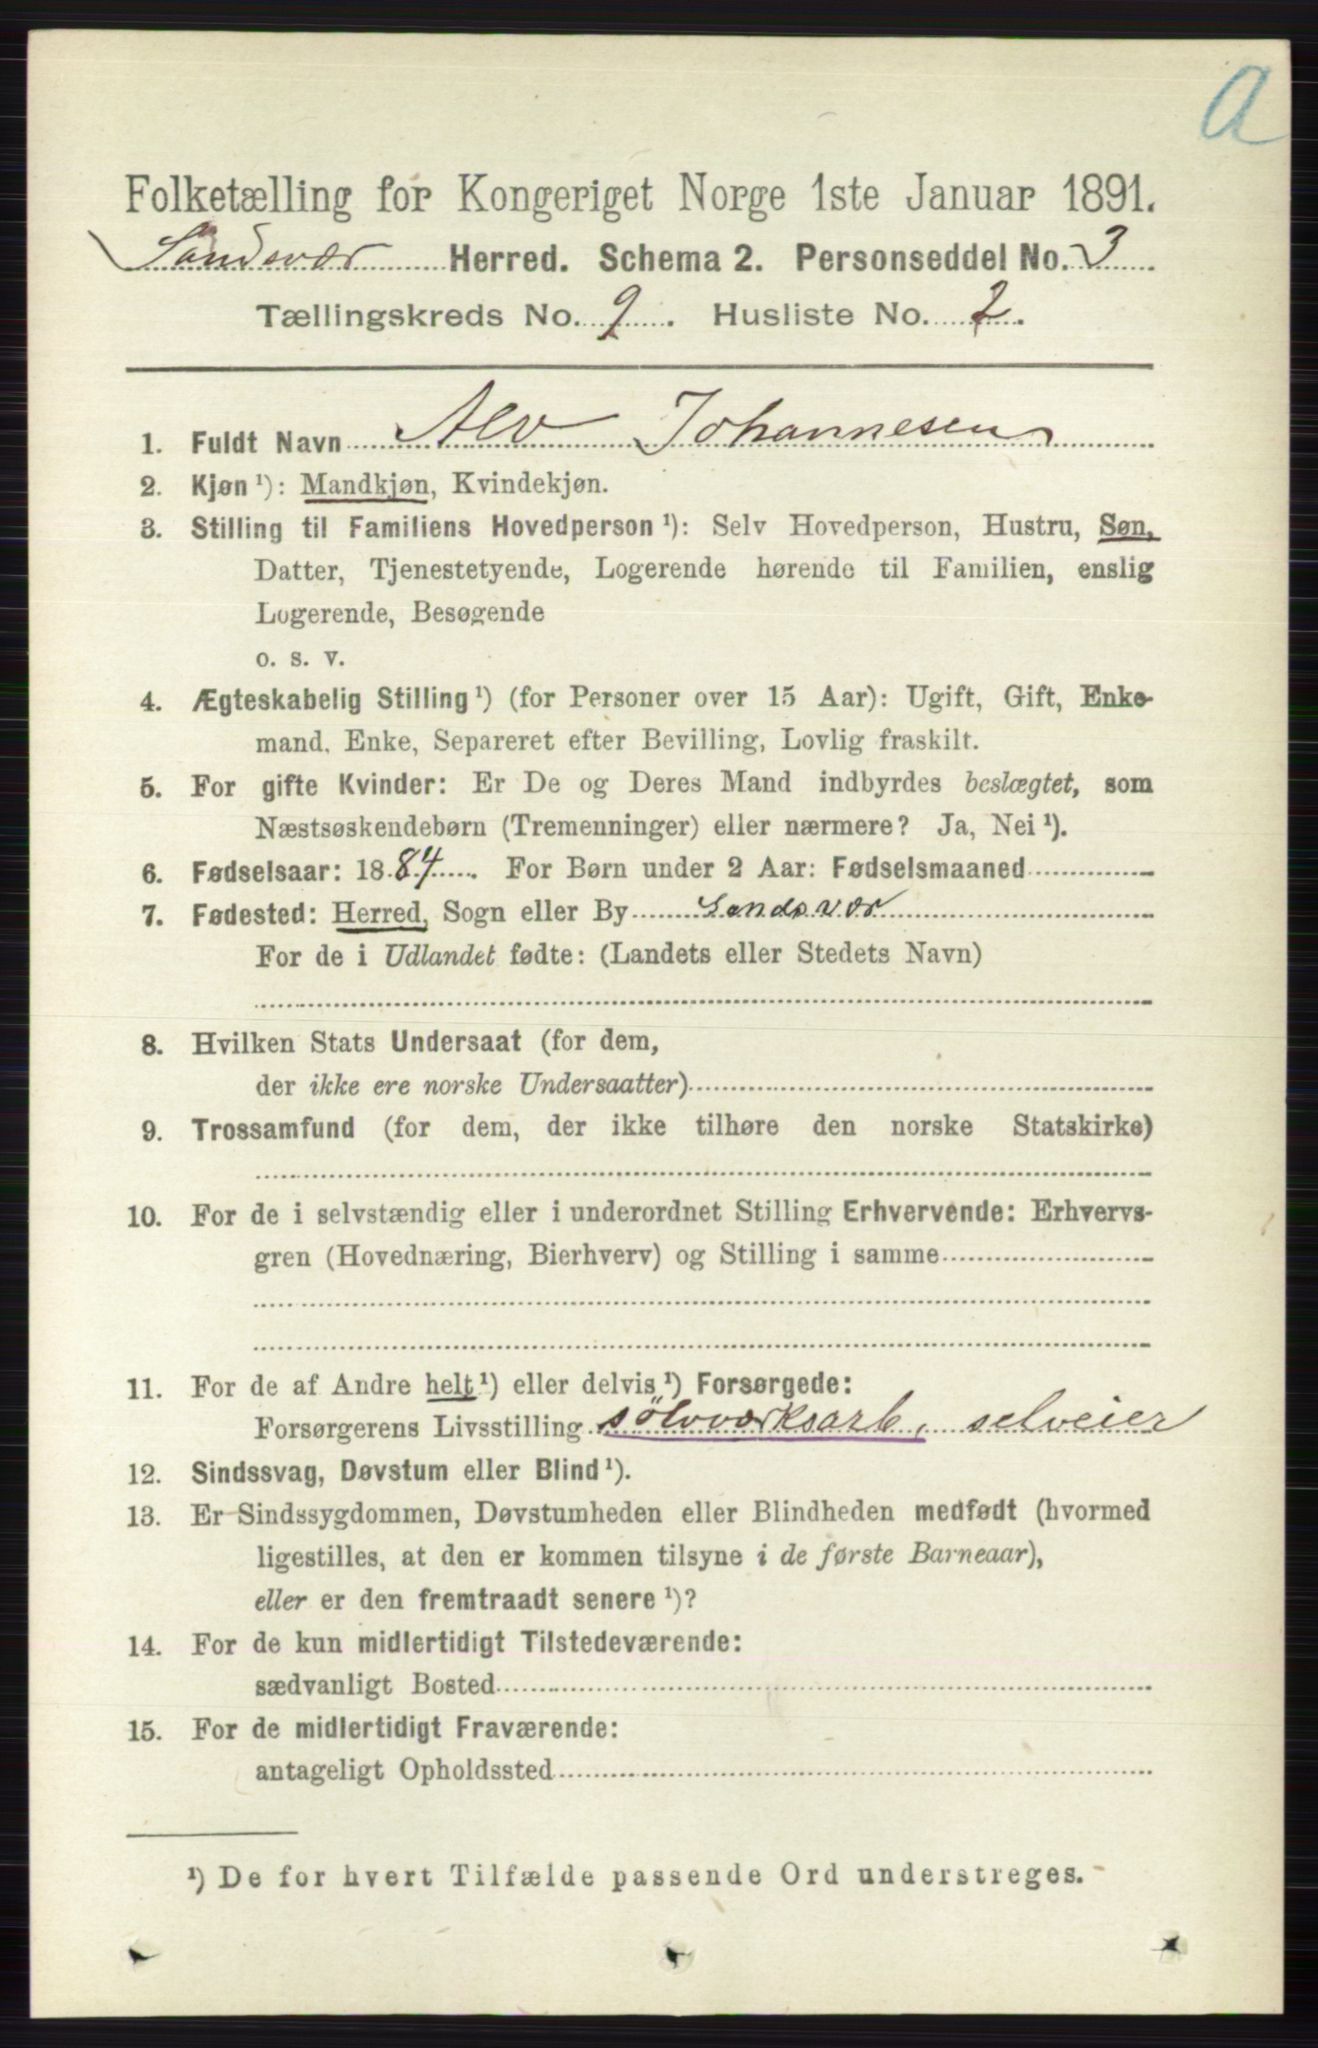 a
Folketælling for Kongeriget Norge 1ste Januar 1891.
Sandsvær Herred. Schema 2. Personseddel No. 3
Tællingskreds No. 9. Husliste No. 2.
1. Fuldt Navn Alv Johannesen
2. Kjøn¹): Mandkjøn, Kvindekjøn.
3. Stilling til Familiens Hovedperson¹): Selv Hovedperson, Hustru, Søn,
Datter, Tjenestetyende, Logerende hørende til Familien, enslig
Logerende, Besøgende
o. s. v.
4. Ægteskabelig Stilling¹) (for Personer over 15 Aar): Ugift, Gift, Enke-
mand, Enke, Separeret efter Bevilling, Lovlig fraskilt.
5. For gifte Kvinder: Er De og Deres Mand indbyrdes beslægtet, som
Næstsøskendebørn (Tremenninger) eller nærmere? Ja, Nei¹).
6. Fødselsaar: 1884. For Børn under 2 Aar: Fødselsmaaned
7. Fødested: Herred, Sogn eller By Sandsvær
For de i Udlandet fødte: (Landets eller Stedets Navn)
8. Hvilken Stats Undersaat (for dem,
der ikke ere norske Undersaatter)
9. Trossamfund (for dem, der ikke tilhøre den norske Statskirke)
10. For de i selvstændig eller i underordnet Stilling Erhvervende: Erhvervs-
gren (Hovednæring, Bierhverv) og Stilling i samme
11. For de af Andre helt¹) eller delvis¹) Forsørgede:
Forsørgerens Livsstilling sölvværksarb, selveier
12. Sindssvag, Døvstum eller Blind¹).
13. Er Sindssygdommen, Døvstumheden eller Blindheden medfødt (hvormed
ligestilles, at den er kommen tilsyne i de første Barneaar),
eller er den fremtraadt senere¹)?
14. For de kun midlertidigt Tilstedeværende:
sædvanligt Bosted
15. For de midlertidigt Fraværende:
antageligt Opholdssted
¹) De for hvert Tilfælde passende Ord understreges.